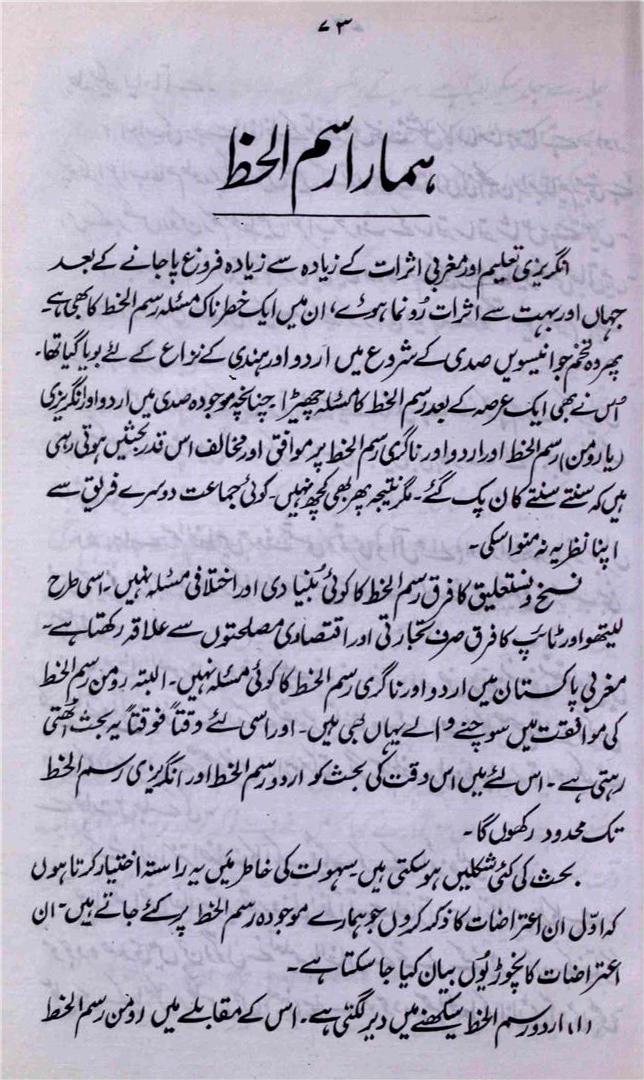 ۷۳
ہمارا رسم الخط
انگریزی تعلیم اور مغربی اثرات کے زیادہ سے زیادہ فروغ پا جانے کے بعد
جہاں اور بہت سے اثرات رُونما ہوئے، ان میں ایک خطرناک مسئلہ رسم الخط کا بھی ہے۔
پھر وہ تخم جو انیسویں صدی کے شروع میں اردو اور ہندی کے نزاع کے لئے بویا گیا تھا۔
اُس نے بھی ایک عرصہ کے بعد رسم الخط کا مسئلہ چھیڑا۔ چنانچہ موجودہ صدی میں اردو اور انگریزی
(یا رومن) رسم الخط اور اردو اور ناگری رسم الخط پر موافق اور مخالف اس قدر بحثیں ہوتی رہی
ہیں کہ سنتے سنتے کان پک گئے۔ مگر نتیجہ پھر بھی کچھ نہیں۔ کوئی جماعت دوسرے فریق سے
اپنا نظریہ نہ منوا سکی۔
نسخ و نستعلیق کا فرق رسم الخط کا کوئی بُنیادی اور اختلافی مسئلہ نہیں۔ اسی طرح
لیتھو اور ٹائپ کا فرق صرف تجارتی اور اقتصادی مصلحتوں سے علاقہ رکھتا ہے۔
مغربی پاکستان میں اردو اور ناگری رسم الخط کا کوئی مسئلہ نہیں۔ البتہ رومن رسم الخط
کی موافقت میں سوچنے والے یہاں بھی ہیں۔ اور اسی لئے وقتاً فوقتاً یہ بحث اُٹھتی
رہتی ہے۔ اس لئے میں اس وقت کی بحث کو اردو رسم الخط اور انگریزی رسم الخط
تک محدود رکھوں گا۔
بحث کی کئی شکلیں ہو سکتی ہیں۔ سہولت کی خاطر میں یہ راستہ اختیار کرتا ہوں
کہ اوّل ان اعتراضات کا ذکر کروں جو ہمارے موجودہ رسم الخط پر کئے جاتے ہیں۔ ان
اعتراضات کا نچوڑ یُوں بیان کیا جا سکتا ہے۔
(۱) اردو رسم الخط سیکھنے میں دیر لگتی ہے۔ اس کے مقابلے میں رومن رسم الخط